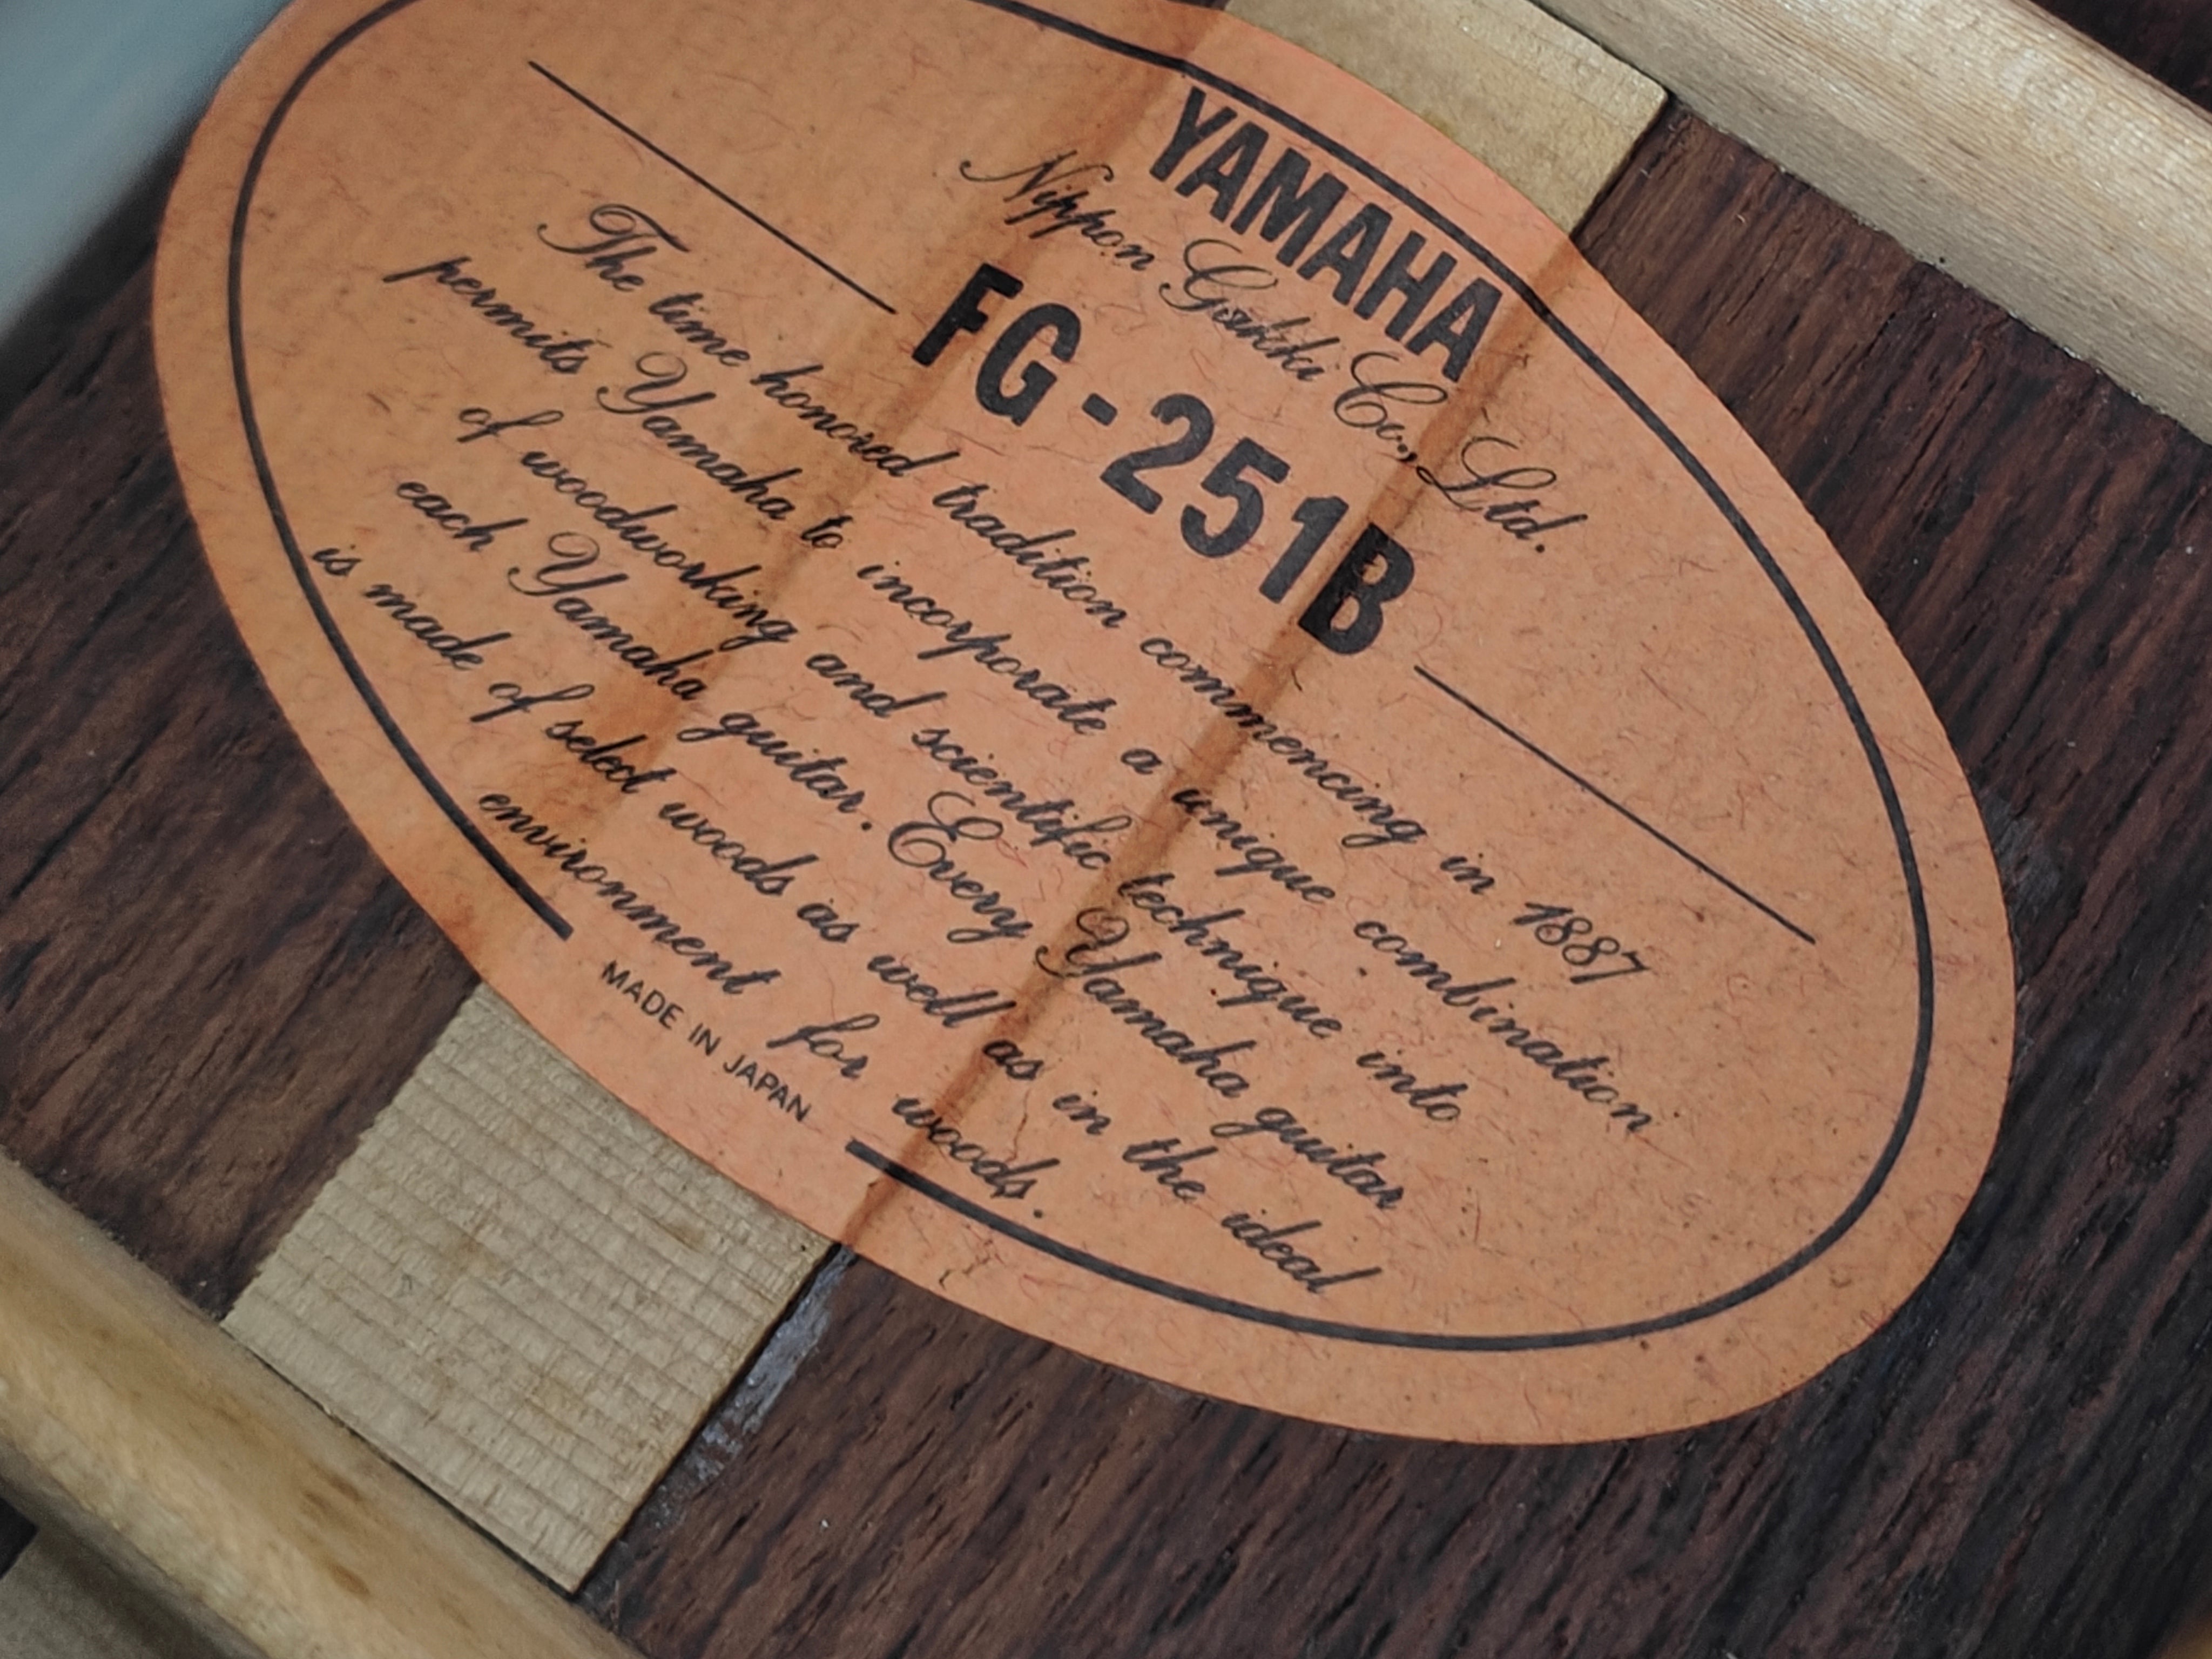 YAMAHA
Nippon Gakki Co., Ltd.
FG-251B
The time honored tradition commencing in 1887
permits Yamaha to incorporate a unique combination
of woodworking and scientific technique into
each Yamaha guitar. Every Yamaha guitar
is made of select woods as well as in the ideal
environment for woods.
MADE IN JAPAN